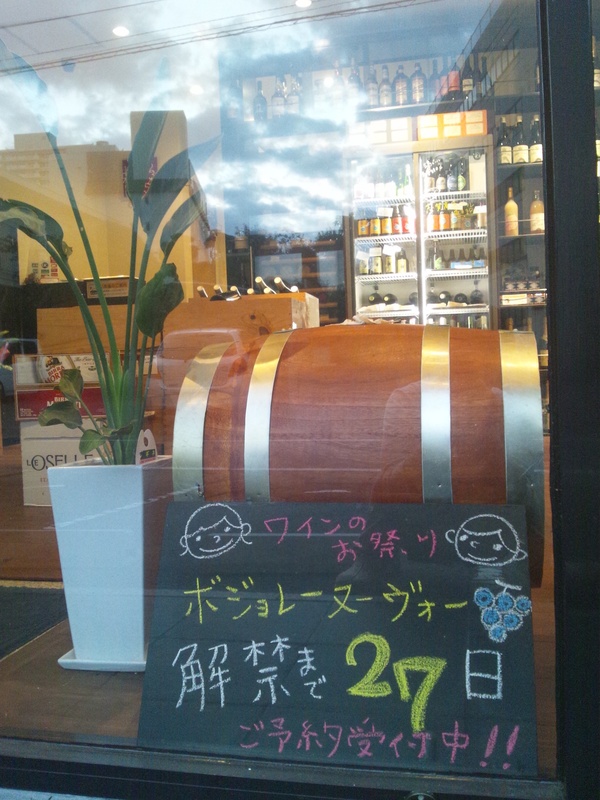 LE OSELLE
ワインの
お祭り
ボジョレーヌーヴォー
解禁まで27日
ご予約受付中!!